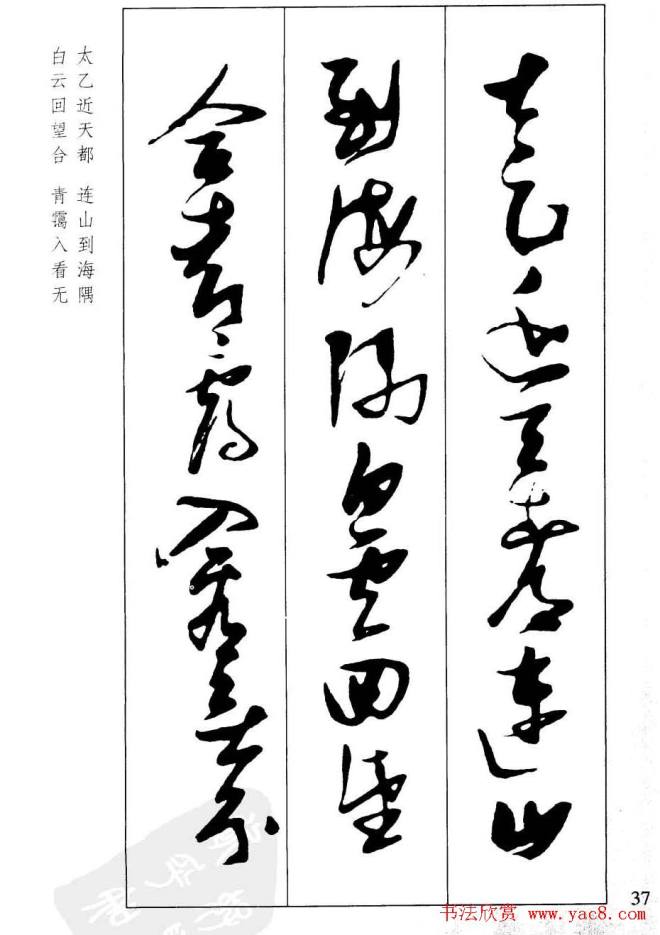 太乙近天都 连山到海隅
白云回望合 青霭入看无
太乙近天都連山
到海隅白雲回望
合青靄入看無分
37
书法欣赏 www.yac8.com